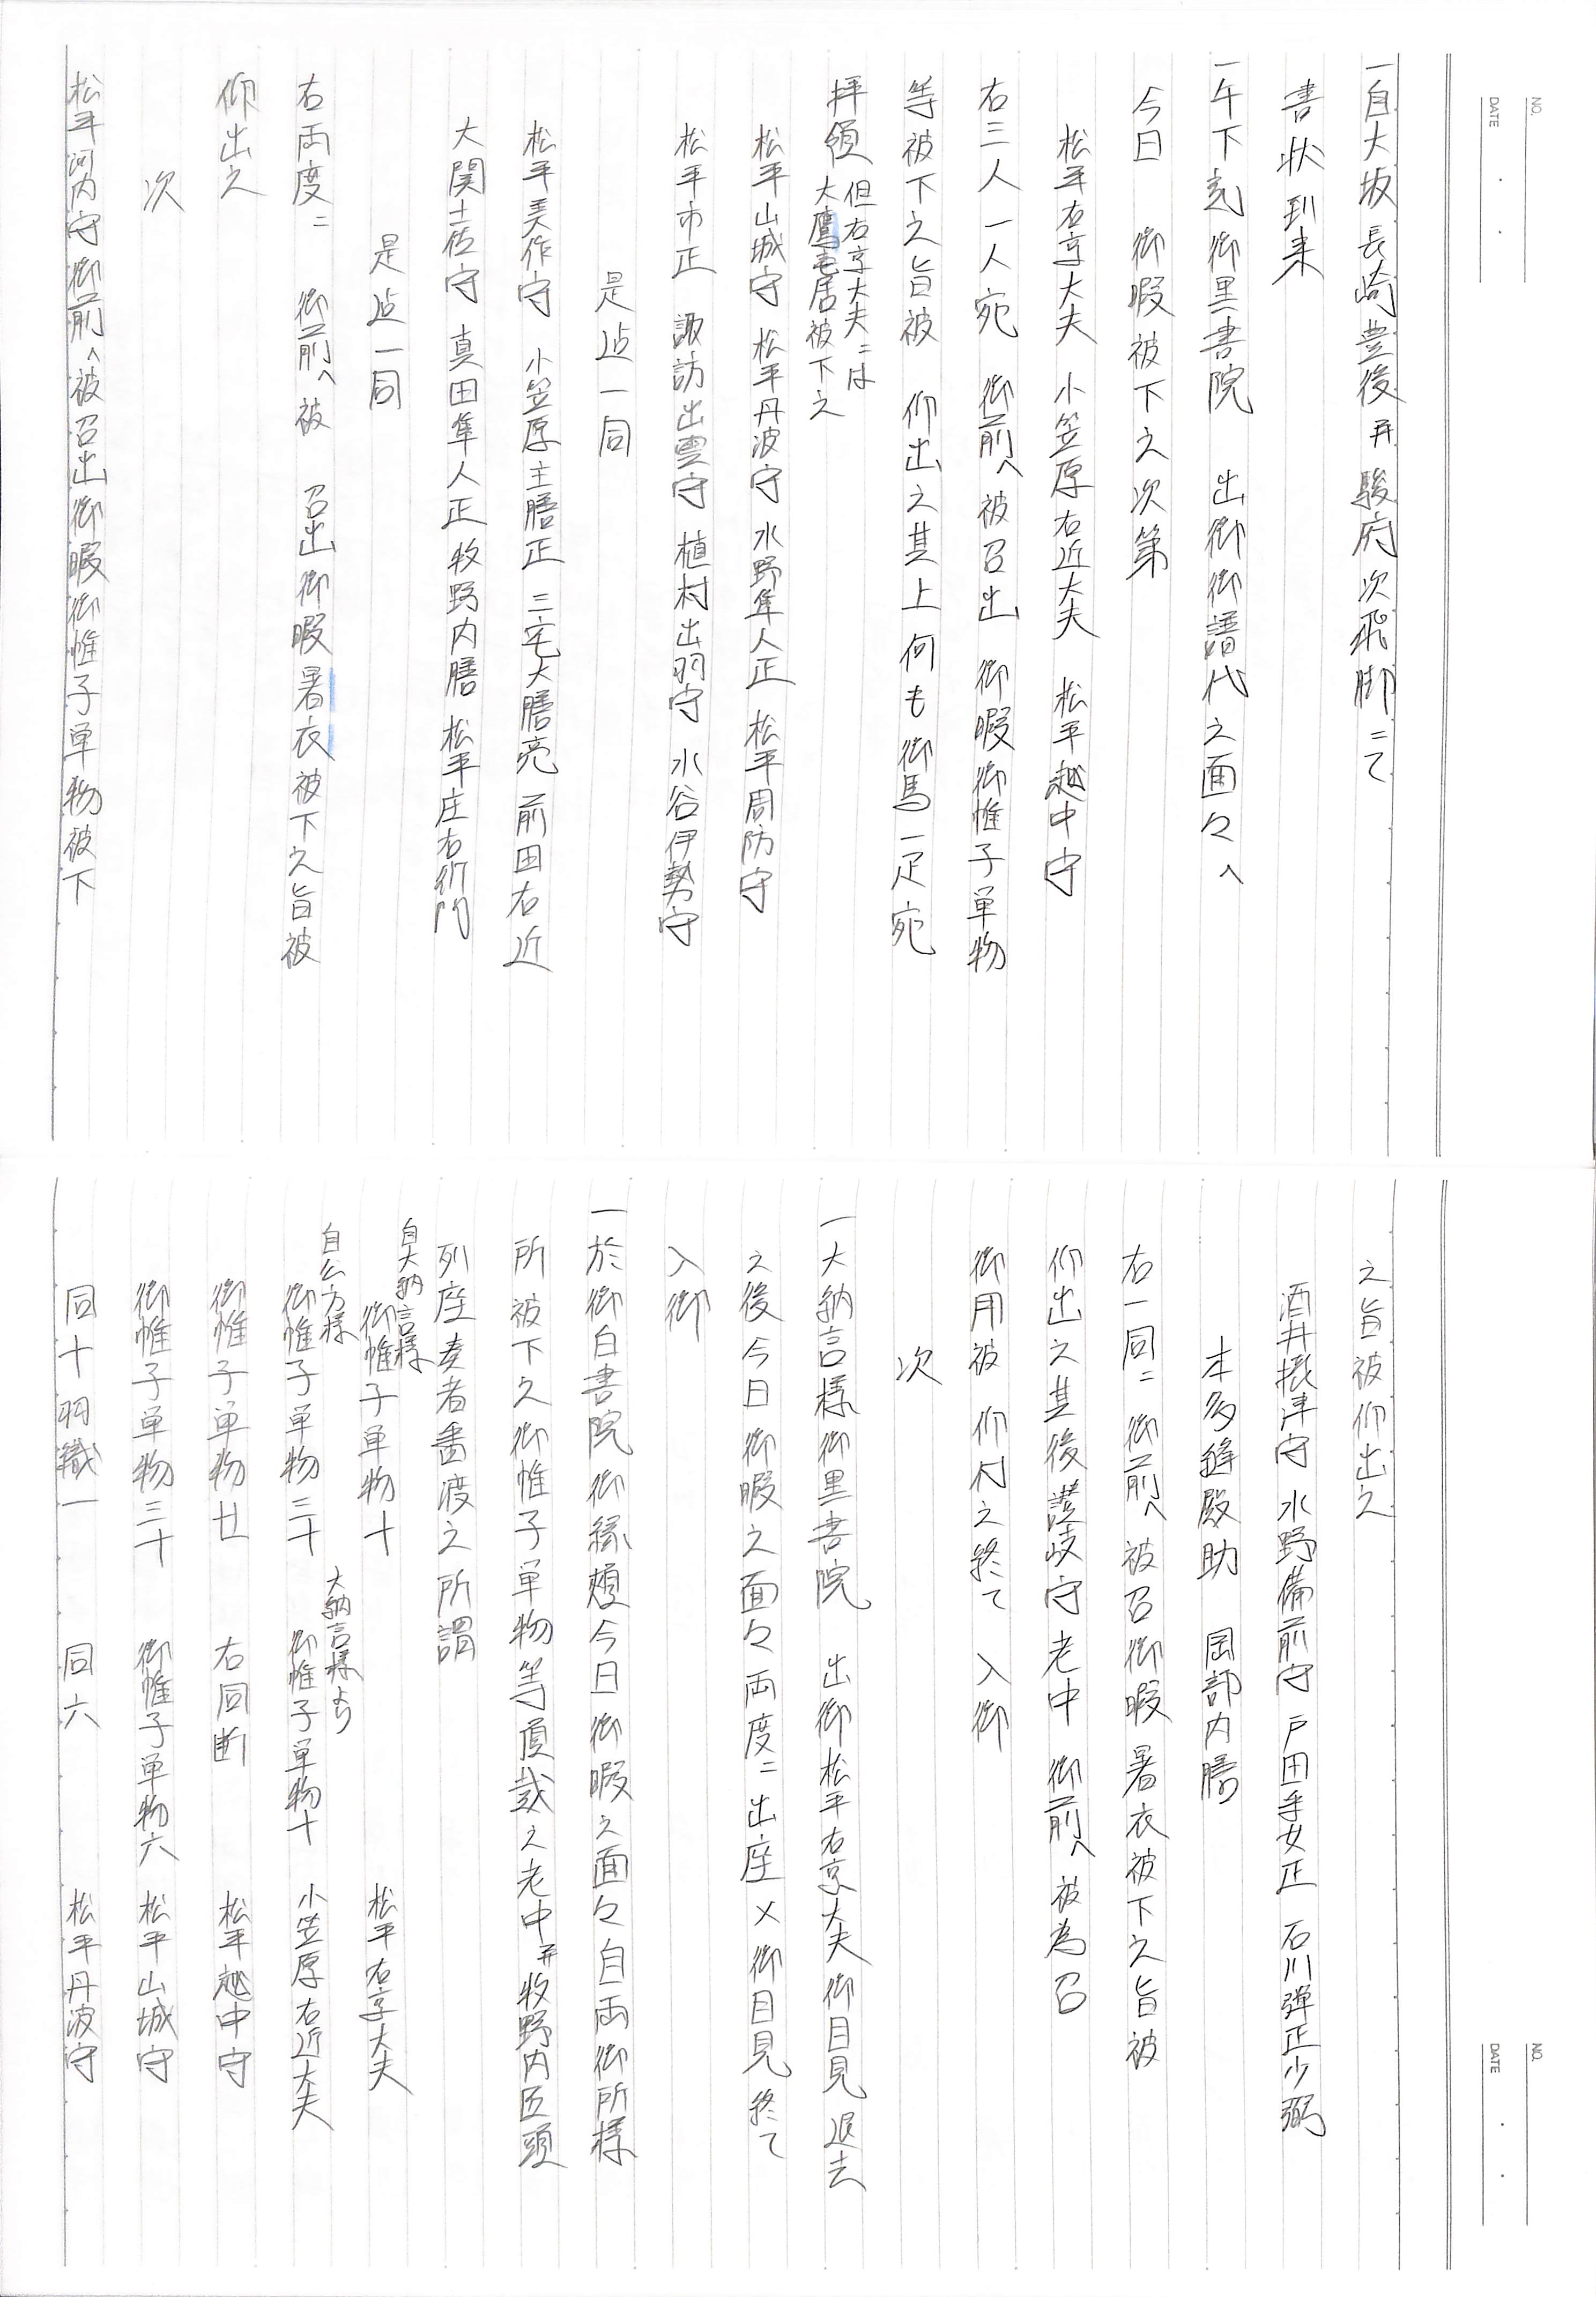 NO.
DATE
一自大坂長崎豊後并駿府次飛脚ニて
書状到来
一午下刻御黒書院　出御御譜代之面々へ
今日　御暇被下之次第
松平右京大夫　小笠原右近大夫　松平越中守
右三人一人宛　御前へ被召出　御暇御帷子単物
等被下之旨被　仰出之其上何も御馬一疋宛
拝領 但右京大夫ニは
大鷹壱居被下之
松平山城守　松平丹波守　水野隼人正　松平周防守
松平市正　諏訪出雲守　植村出羽守　水谷伊勢守
是迄一同
松平美作守　小笠原主膳正　三宅大膳亮　前田右近
大関土佐守　真田隼人正　牧野内膳　松平庄右衛門
是迄一同
右両度ニ　御前へ被　召出御暇暑衣被下之旨被
仰出之
次
松平河内守御前へ被召出御暇御帷子単物被下
NO.
DATE
之旨被仰出之
酒井摂津守　水野備前守　戸田采女正　石川弾正少弼
本多縫殿助　岡部内膳
右一同ニ　御前へ被召御暇　暑衣被下之旨被
仰出之其後讃岐守老中　御前へ被為召
御用被　仰付之終て　入御
次
一大納言様御黒書院　出御松平右京大夫御目見退去
之後今日御暇之面々両度ニ出座〆御目見終て
入御
一於御白書院御縁頬今日御暇之面々自両御所様
所被下之御帷子単物等頂戴之老中并牧野内匠頭
列座奏者番渡之所謂
自大納言様
御帷子単物十　松平右京大夫
自公方様
御帷子単物三十　大納言様より
御帷子単物十　小笠原右近大夫
御帷子単物廿　右同断　松平越中守
御帷子単物三十　御帷子単物六　松平山城守
同十羽織一　同六　松平丹波守